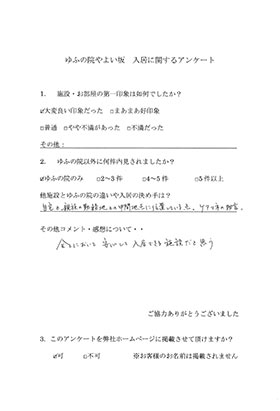 ゆふの院やよい坂 入居に関するアンケート
1. 施設・お部屋の第一印象は如何でしたか?
☑大変良い印象だった □まあまあ好印象
□普通 □やや不満があった □不満だった
その他:
2. ゆふの院以外に何件内見されましたか?
☑ゆふの院のみ □2~3件 □4~5件 □5件以上
他施設とゆふの院の違いや入居の決め手は?
自宅と、親族の勤務地との中間地点に位置している点、ケアの質
その他コメント・感想について・・
全てにおいて安心して入居できる施設だと思う
ご協力ありがとうございました
3. このアンケートを弊社ホームページに掲載させて頂けますか?
☑可 □不可 ※お客様のお名前は掲載されません